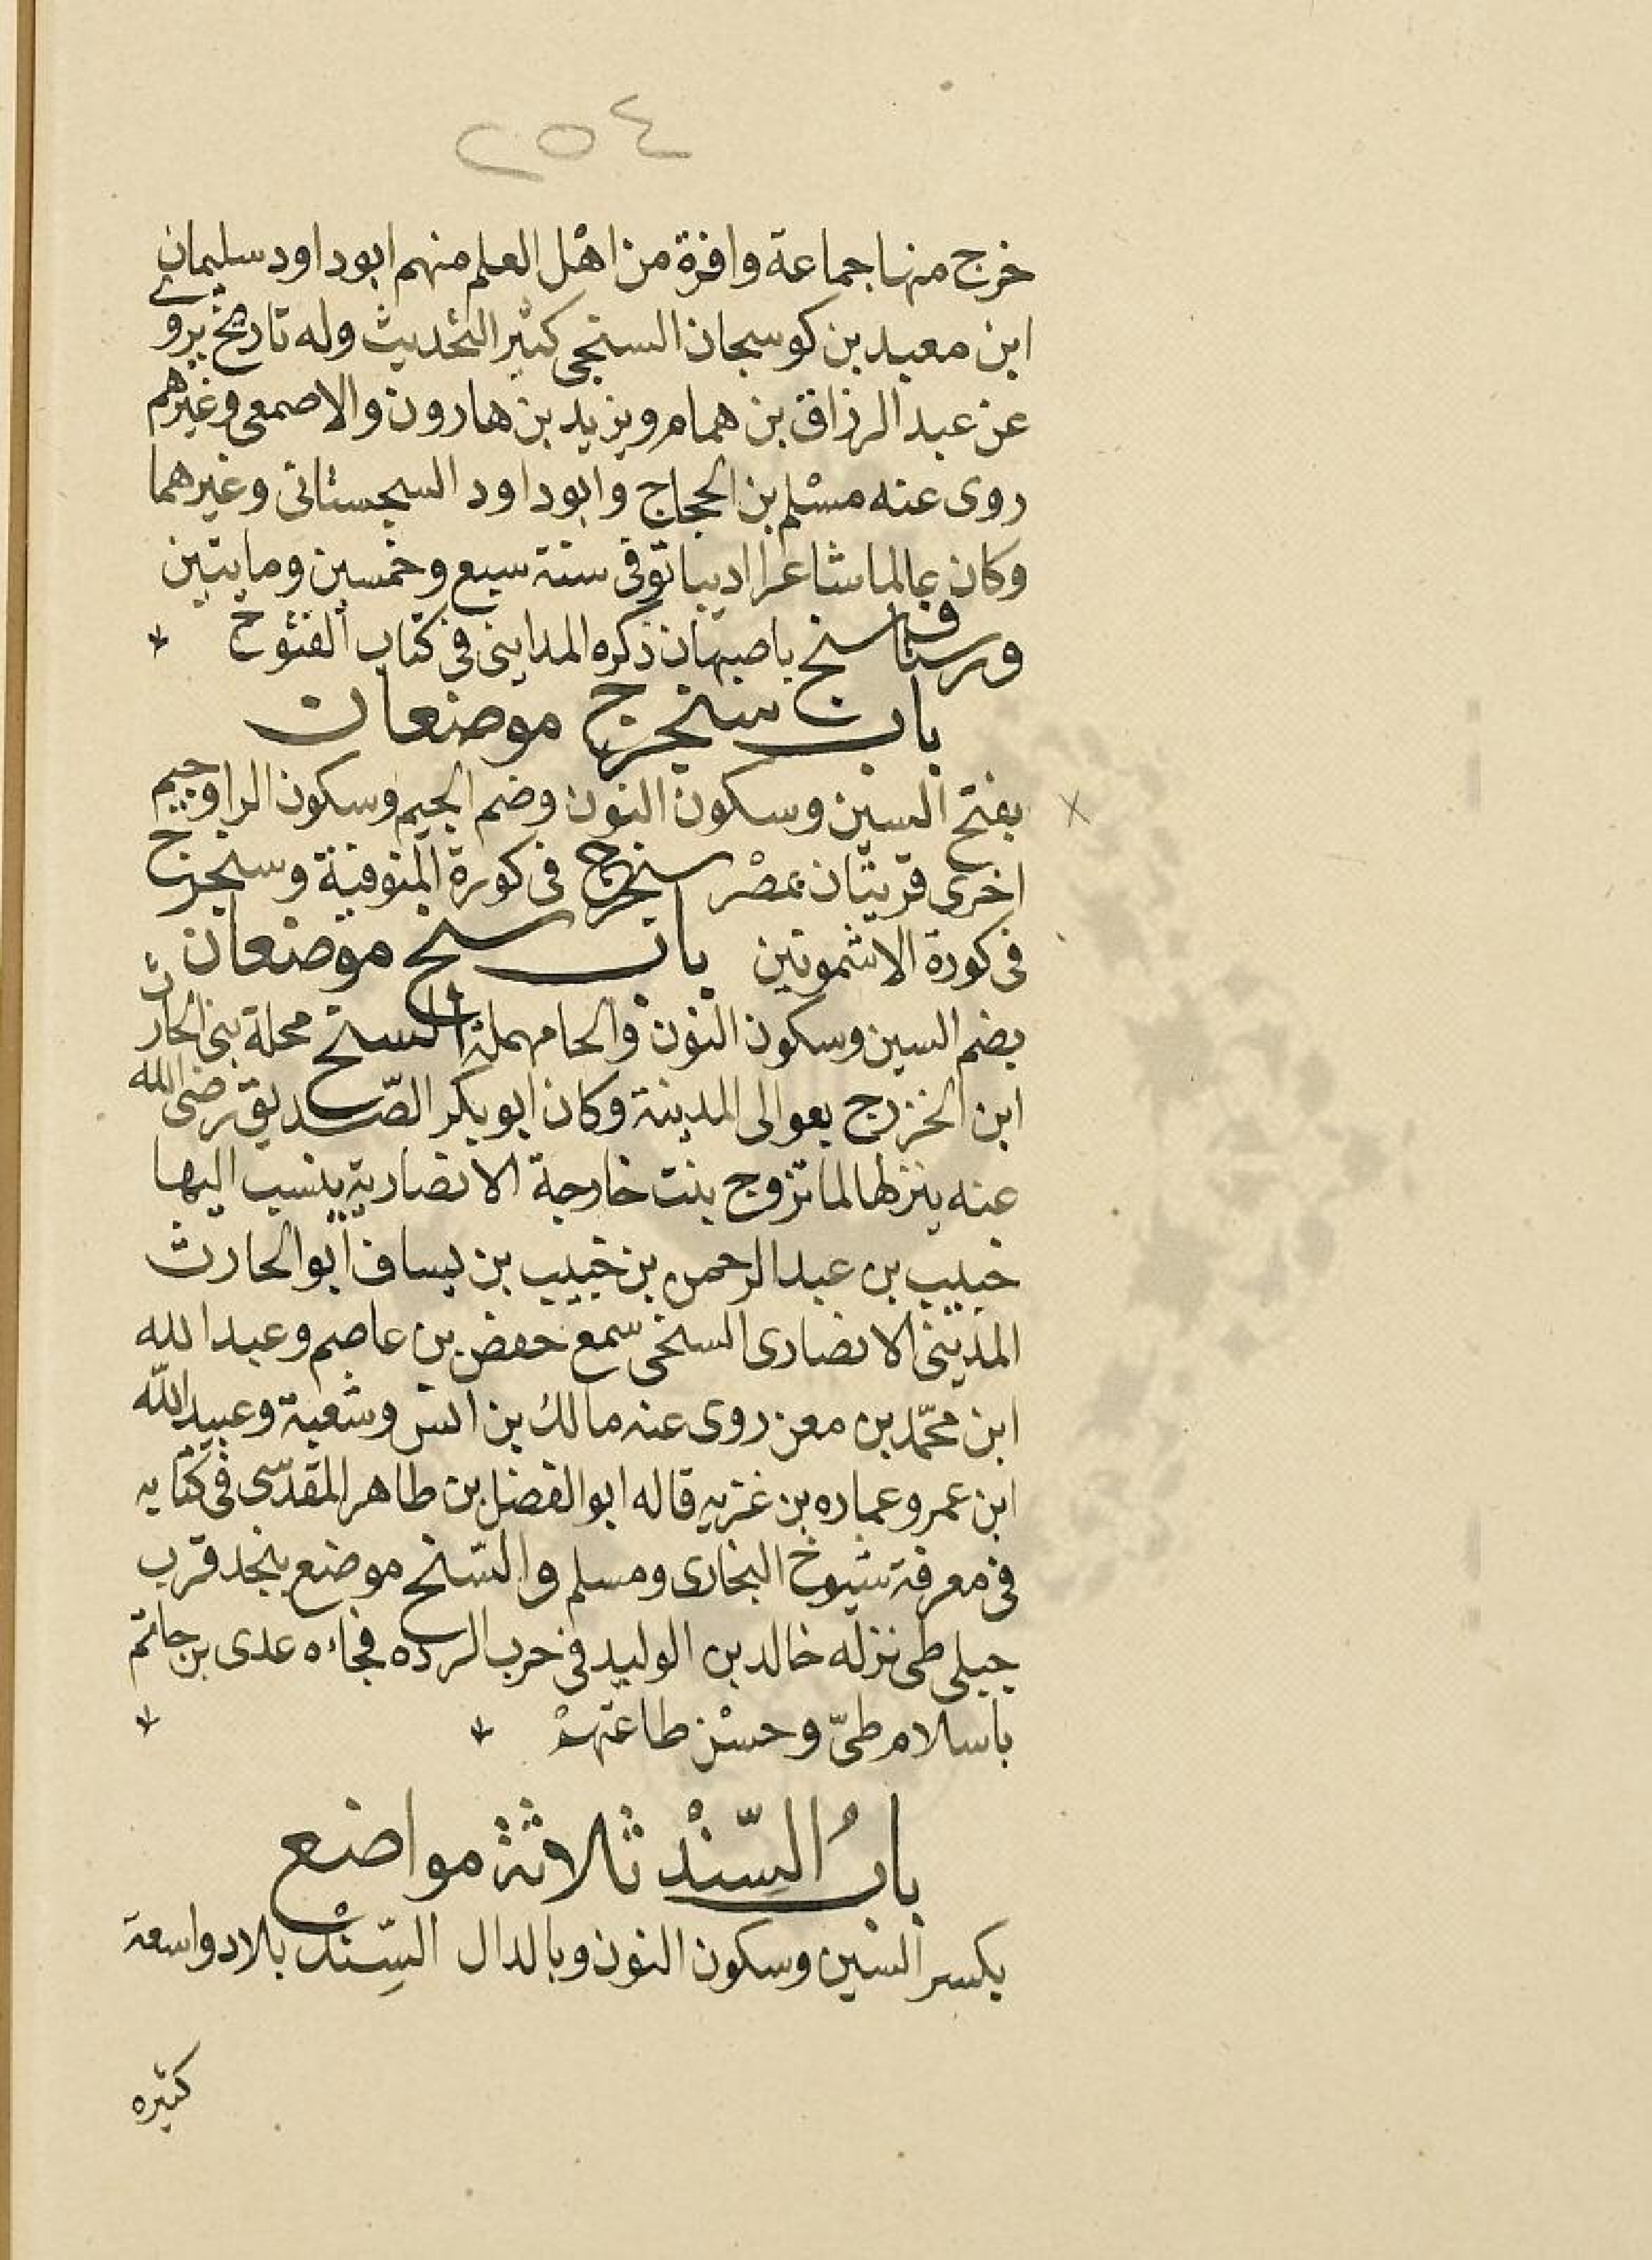 ٢٥٤
خرج منها جماعة وافرة من اهل العلم منهم ابوداود سليمان
ابن معبد بن كوسجان السنجي كثير التحديث وله تاريخ يروي
عن عبد الرزاق بن همام ويزيد بن هارون والاصمعي وغيرهم
روى عنه مسلم بن الحجاج وابوداود السجستاني وغيرهما
وكان عالما شاعرا اديبا توفي سنة سبع وخمسين ومايتين
ورستاق سنج باصبهان ذكره المدايني في كتاب الفتوح
باب سنجرج موضعان
بفتح السين وسكون النون وضم الجيم وسكون الرا وجيم
اخرى قريتان بمصر سنجرج في كورة المنوفية وسنجرج
في كورة الاشمونين باب سنح موضعان
بضم السين وسكون النون والحا مهملة السنح محلة بني الحارث
ابن الخزرج بعوالي المدينة وكان ابو بكر الصّديق رضي الله
عنه ينزلها لما تزوج بنت خارجة الانصارية ينسب اليها
خبيب بن عبد الرحمن بن خبيب بن يساف ابو الحارث
المديني الانصارى السنحى سمع حفص بن عاصم وعبد الله
ابن محمّد بن معن روى عنه مالك بن انس وشعبة وعبيد الله
ابن عمر وعماره بن غزيه قاله ابو الفضل بن طاهر المقدسي في كتابه
في معرفة شيوخ البخارى ومسلم والسنح موضع بنجد قرب
جبلي طي نزله خالد بن الوليد في حرب الرده فجاءه عدى بن حاتم
باسلام طيّ وحسْن طاعتهمْ
بابُ السِّنْد ثلاثة مواضع
بكسر السين وسكون النون وبالدال السِّنْد بلاد واسعة
كثيره